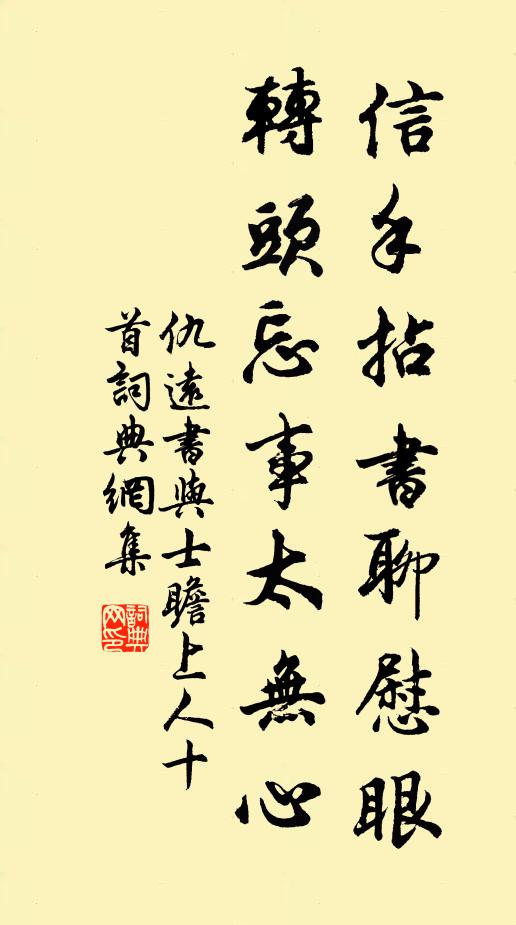 信手拈書聊慰眼
轉頭忘事太無心
仇遠書與士瞻上人十
首詞典網集
詞典
网印